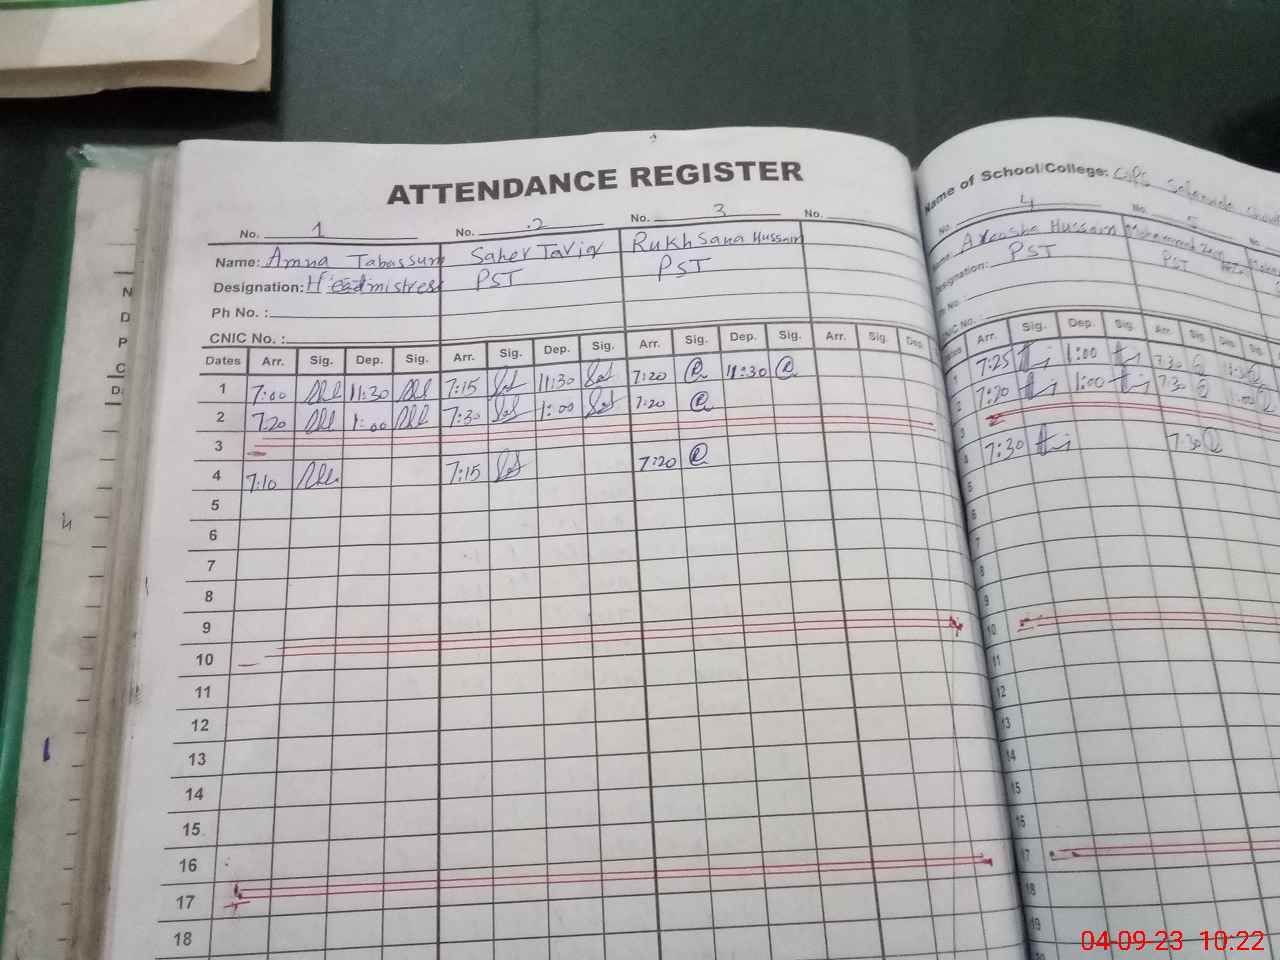 ATTENDANCE REGISTER
No. 1 No. 2 No. 3 No.
Name: Amna Tabassum Saher Tariq Rukhsana Hussain
Designation: Headmistress PST PST
Ph No. :
CNIC No. :
Dates Arr. Sig. Dep. Sig. Arr. Sig. Dep. Sig. Arr. Sig. Dep. Sig. Arr. Sig. Dep.
1 7:00 11:30 7:15 11:30 7:20 11:30
2 7:20 1:00 7:30 1:00 7:20
3
4 7:10 7:15 7:20
5
6
7
8
9
10
11
12
13
14
15
16
17
18
Name of School/College: GPS
No. 4 No. 5 No.
Name: Hussain
Designation: PST PST
Ph No. :
CNIC No. :
Arr. Sig. Dep. Sig. Arr. Sig. Dep. Sig.
1 7:25 1:00 7:30
2 7:20 1:00 7:30 1:00
3
4 7:30 7:30
5
6
7
8
9
10
11
12
13
14
15
16
17
18
19
04-09-23 10:22